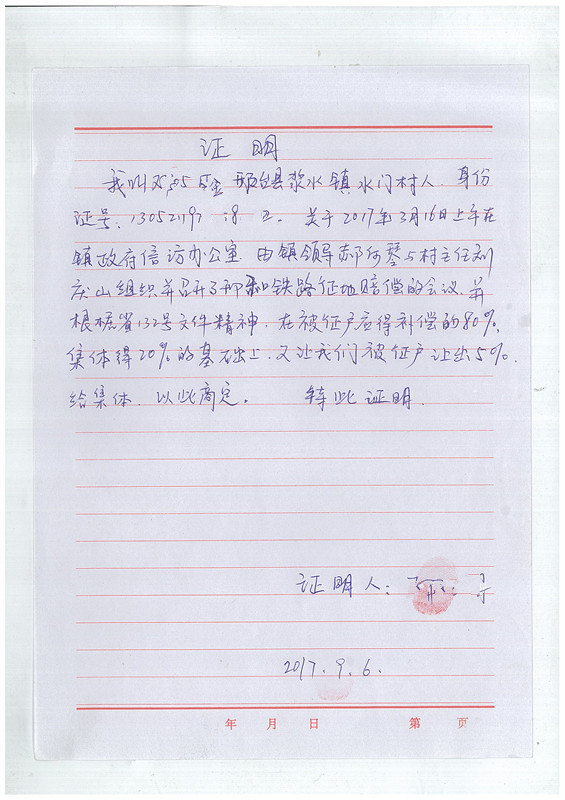 证 明
我叫 邢台县浆水镇水门村人。身份
证号:13052119 。关于2017年3月16日上午在
镇政府信访办公室.由镇领导郝 琴与村主任刘
庆山组织并召开了邢和铁路征地赔偿的会议.并
根据省132号文件精神.在被征户应得补偿的80%.
集体得20%的基础上.又让我们被征户让出5%.
给集体.以此商定。 特此证明.
证明人:
2017.9.6.
年 月 日 第 页